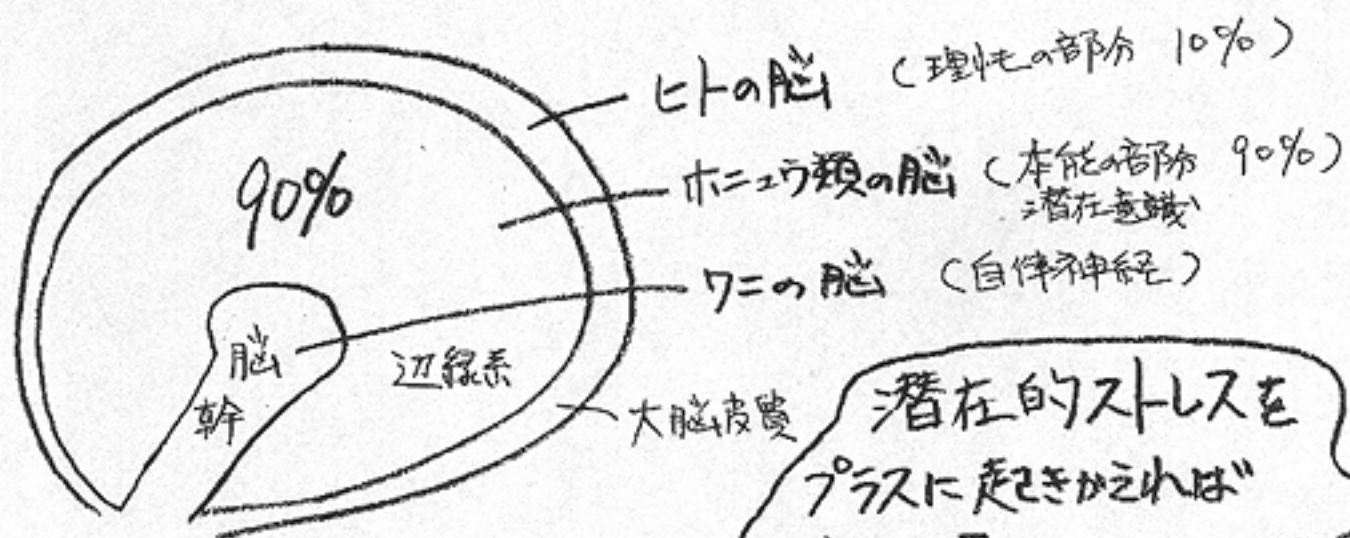 ヒトの脳 (理性の部分 10%)
90%
ホニュウ類の脳 (本能の部分 90%)
潜在意識
ワニの脳 (自律神経)
脳
幹
辺縁系
大脳皮質
潜在的ストレスを
プラスに起きかえれば